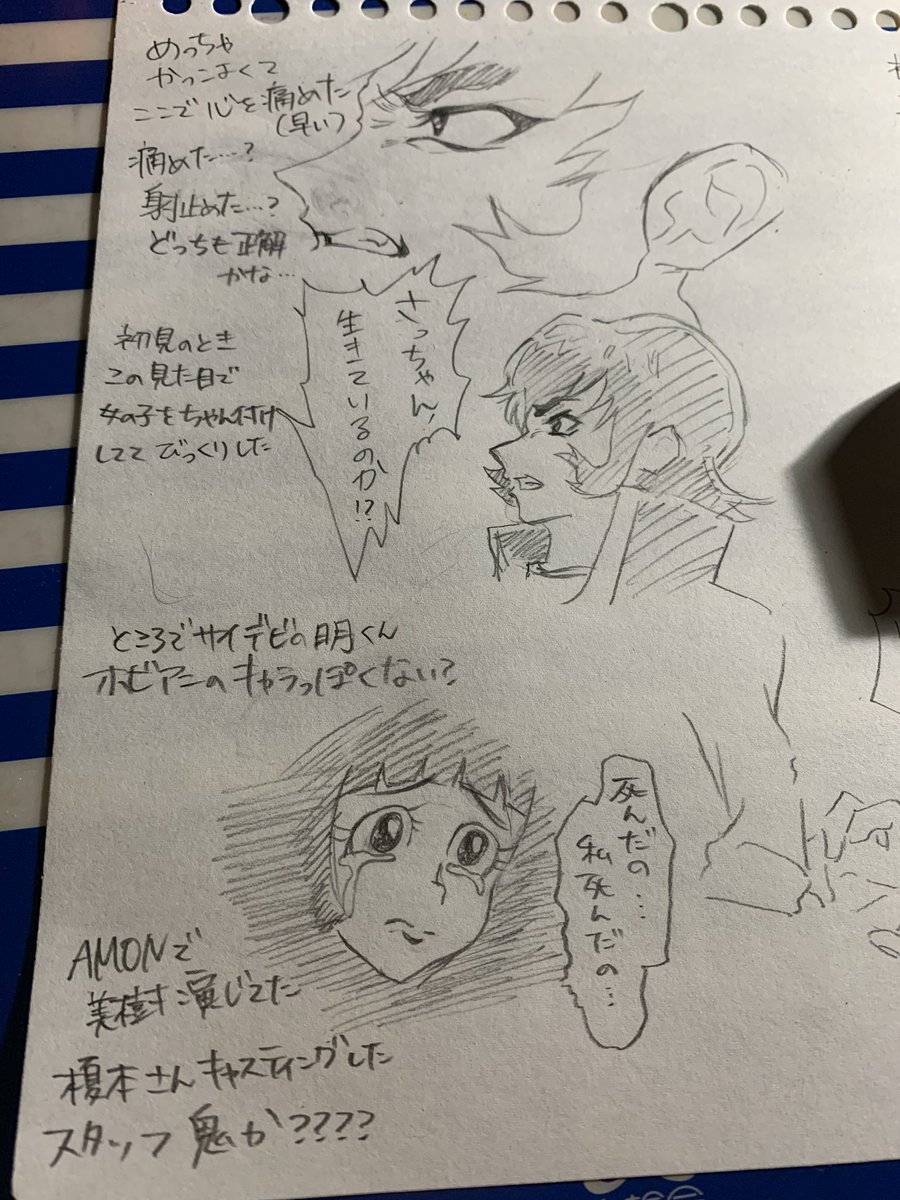 めっちゃ
かっこよくて
ここで心を痛めた
(早い)
痛めた…?
射止めた…?
どっちも正解
かな…
さっちゃん、
生きているのか!?
初見のとき
この見た目で
女の子をちゃん付け
しててびっくりした
ところでサイデビの明くん
ホビアニのキャラっぽくない?
死んだの…
私死んだの…
AMONで
美樹演じてた
榎本さんキャスティングした
スタッフ鬼か????